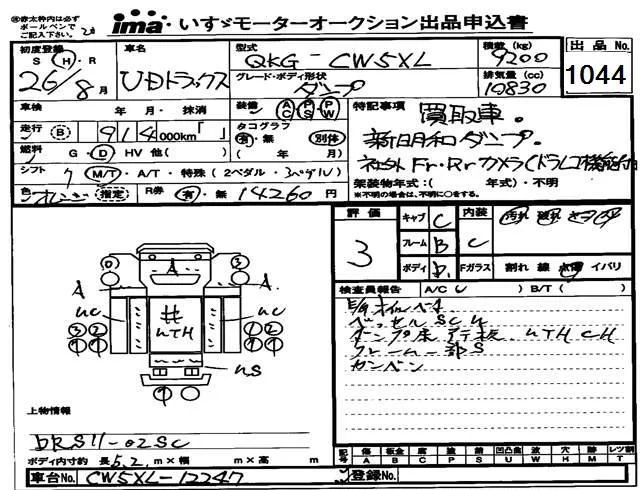 ※赤太枠内は必ず
ボールペンで
ご記入下さい。
ima いすゞモーターオークション出品申込書
初度登録 S H・R 26/8月
車名 UDトラックス
型式 QKG-CW5XL
積載 (kg) 9200
出品No. 1044
グレード・ボディ形状 ダンプ
排気量 (cc) 10830
車検 年 月・抹消
装備 AC PS PW
特記事項 買取車。
走行 B 914000km「 」
タコグラフ 有・無 別体
( 年 月)
新明和ダンプ。
燃料 G・D HV 他( )
社外Fr・Rrカメラ(ドラレコ機能付
シフト 7 M/T・A/T・特殊(2ペダル・3ペダル)
架装物年式:( 年式)・不明
※不明の場合は、不明に○をする。
色 オレンジ 指定 R券 有・無 14260円
評価 3
キャブ C
内装 C
フレーム B
ボディ D
Fガラス 割れ 線 点傷 イバリ
検査員報告 A/C( )B/T( )
E/gオイルベース
ベッセルSCU
ダンプ床アテ板、UTH CH
フレーム一部S
カンバン
A A
UC UC
UTH
US
0 3
3 2 1 2
9 9 9 9
9
上物情報
DRS11-02SC
ボディ内寸約 長5.2.m×幅 m×高 m
記号 傷A 板金B 腐C 塗P 錆S 凹凸曲U 波W 穴H 跡M レツ割T
車台No. CW5XL-12247
登録No.